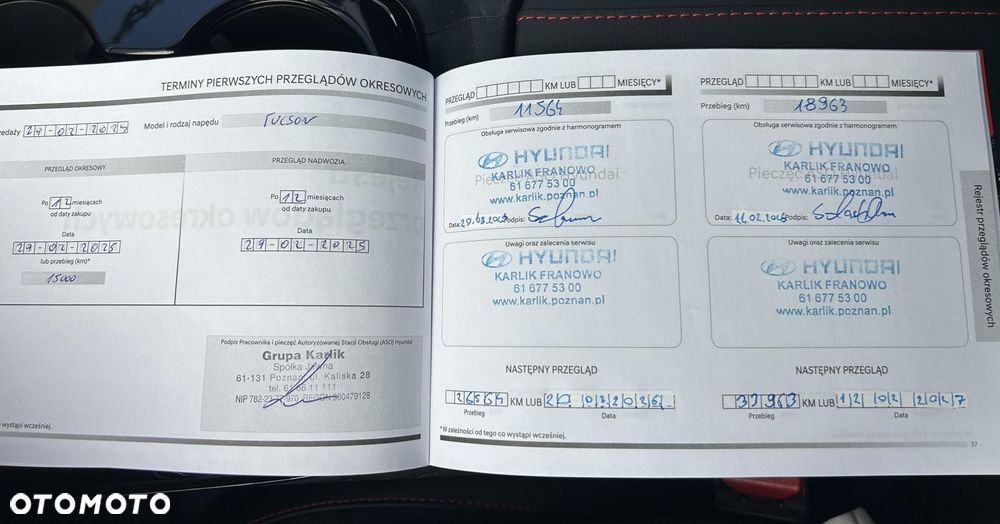 TERMINY PIERWSZYCH PRZEGLĄDÓW OKRESOWYCH
Model i rodzaj napędu TUCSON
PRZEGLĄD OKRESOWY
Po 12 miesiącach
od daty zakupu
Data
27-02-2025
lub przebieg (km)*
15000
PRZEGLĄD NADWOZIA
Po 12 miesiącach
od daty zakupu
Data
27-02-2025
Podpis Pracownika i pieczęć Autoryzowanej Stacji Obsługi (ASO) Hyundai
Grupa Karlik
Spółka Jawna
61-131 Poznań, ul. Kaliska 28
wystąpi wcześniej.
PRZEGLĄD KM LUB MIESIĘCY*
Przebieg (km) 11564
Obsługa serwisowa zgodnie z harmonogramem
HYUNDAI
KARLIK FRANOWO
61 677 53 00
www.karlik.poznan.pl
Data: Podpis:
Uwagi oraz zalecenia serwisu
HYUNDAI
KARLIK FRANOWO
61 677 53 00
www.karlik.poznan.pl
NASTĘPNY PRZEGLĄD
26564 KM LUB
Przebieg Data
*W zależności od tego co wystąpi wcześniej.
PRZEGLĄD KM LUB MIESIĘCY*
Przebieg (km) 18963
Obsługa serwisowa zgodnie z harmonogramem
HYUNDAI
KARLIK FRANOWO
61 677 53 00
www.karlik.poznan.pl
Data: 11.02. Podpis:
Uwagi oraz zalecenia serwisu
HYUNDAI
KARLIK FRANOWO
61 677 53 00
www.karlik.poznan.pl
NASTĘPNY PRZEGLĄD
33963 KM LUB 12 02 2027
Przebieg Data
Rejestr przeglądów okresowych
37
OTOMOTO